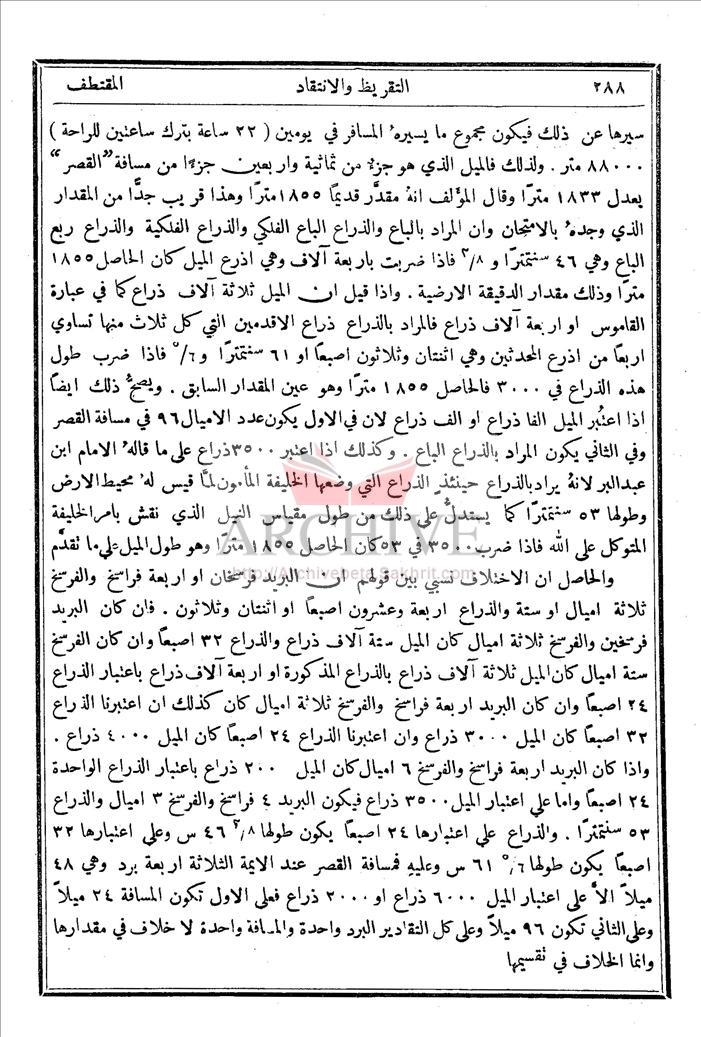 ٢٨٨ التقريظ والانتقاد المقتطف
سيرها عن ذلك فيكون مجموع ما يسيره المسافر في يومين ( ٢٢ ساعة بترك ساعتين للراحة )
٨٨٠٠٠ متر . ولذلك فالميل الذي هو جزء من ثمانية واربعين جزءًا من مسافة "القصر"
يعدل ١٨٣٣ مترًا وقال المؤلف انهُ مقدَّر قديمًا ١٨٥٥ مترًا وهذا قريب جدًّا من المقدار
الذي وجدهُ بالامتحان وان المراد بالباع والذراع الباع الفلكي والذراع الفلكية والذراع ربع
الباع وهي ٤٦ سنتمترًا و ٣/٨ فاذا ضربت باربعة آلاف وهي اذرع الميل كان الحاصل ١٨٥٥
مترًا وذلك مقدار الدقيقة الارضية . واذا قيل ان الميل ثلاثة آلاف ذراع كما في عبارة
القاموس او اربعة آلاف ذراع فالمراد بالذراع ذراع الاقدمين التي كل ثلاث منها تساوي
اربعًا من اذرع المحدثين وهي اثنتان وثلاثون اصبعًا او ٦١ سنتمترًا و ٥/٦ فاذا ضرب طول
هذه الذراع في ٣٠٠٠ فالحاصل ١٨٥٥ مترًا وهو عين المقدار السابق . ويصحُّ ذلك ايضًا
اذا اعتُبر الميل الفا ذراع او الف ذراع لان في الاول يكون عدد الاميال ٩٦ في مسافة القصر
وفي الثاني يكون المراد بالذراع الباع . وكذلك اذا اعتبر ٣٥٠٠ ذراع على ما قالهُ الامام ابن
عبد البر لانهُ يراد بالذراع حينئذٍ الذراع التي وضعها الخليفة المأمون لمَّا قيس لهُ محيط الارض
وطولها ٥٣ سنتمترًا كما يستدلُّ على ذلك من طول مقياس النيل الذي نقش بامر الخليفة
المتوكل على الله فاذا ضرب ٣٥٠٠ في ٥٣ كان الحاصل ١٨٥٥ مترًا وهو طول الميل على ما نقدَّم
والحاصل ان الاختلاف نسبي بين قولهم ان البريد فرسخان او اربعة فراسخ والفرسخ
ثلاثة اميال او ستة والذراع اربعة وعشرون اصبعًا او اثنتان وثلاثون . فان كان البريد
فرسخين والفرسخ ثلاثة اميال كان الميل ستة آلاف ذراع والذراع ٣٢ اصبعًا وان كان الفرسخ
ستة اميال كان الميل ثلاثة آلاف ذراع بالذراع المذكورة او اربعة آلاف ذراع باعتبار الذراع
٢٤ اصبعًا وان كان البريد اربعة فراسخ والفرسخ ثلاثة اميال كان كذلك ان اعتبرنا الذراع
٣٢ اصبعًا كان الميل ٣٠٠٠ ذراع وان اعتبرنا الذراع ٢٤ اصبعًا كان الميل ٤٠٠٠ ذراع .
واذا كان البريد اربعة فراسخ والفرسخ ٦ اميال كان الميل ٢٠٠ ذراع باعتبار الذراع الواحدة
٢٤ اصبعًا واما على اعتبار الميل ٣٥٠٠ ذراع فيكون البريد ٤ فراسخ والفرسخ ٣ اميال والذراع
٥٣ سنتمترًا . والذراع على اعتبارها ٢٤ اصبعًا يكون طولها ٣/٨ ٤٦ س وعلى اعتبارها ٣٢
اصبعًا يكون طولها ٥/٦ ٦١ س وعليه فمسافة القصر عند الايمة الثلاثة اربعة برد وهي ٤٨
ميلاً الاَّ على اعتبار الميل ٦٠٠٠ ذراع او ٢٠٠٠ ذراع فعلى الاول تكون المسافة ٢٤ ميلاً
وعلى الثاني تكون ٩٦ ميلاً وعلى كل التقادير البرد واحدة والمسافة واحدة لا خلاف في مقدارها
وانما الخلاف في تقسيمها
ARCHIVE
http://Archivebeta.Sakhrit.com